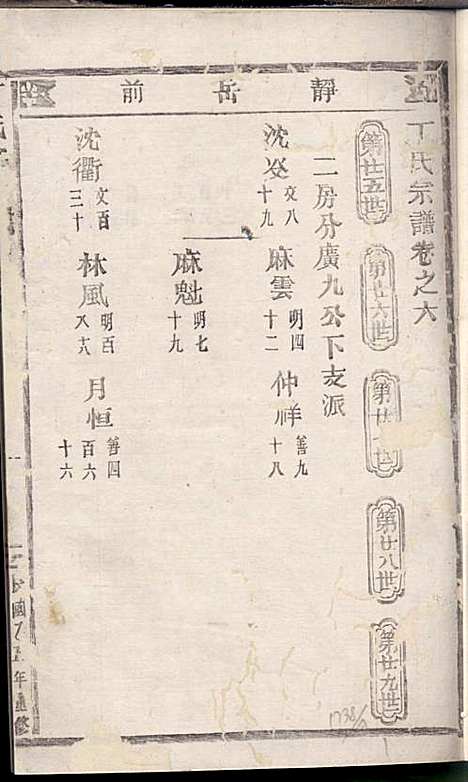 靜岳前
丁氏宗譜卷之六
第廿五世
第廿六世
第廿七世
第廿八世
第廿九世
二房分廣九公下支派
沈癸 文八十九
麻雲 明四十二
仲祥 善九十八
麻魁 明七十九
沈衢 文百三十
林風 明百
月恒 善四百六十六
國
年重修
1738/